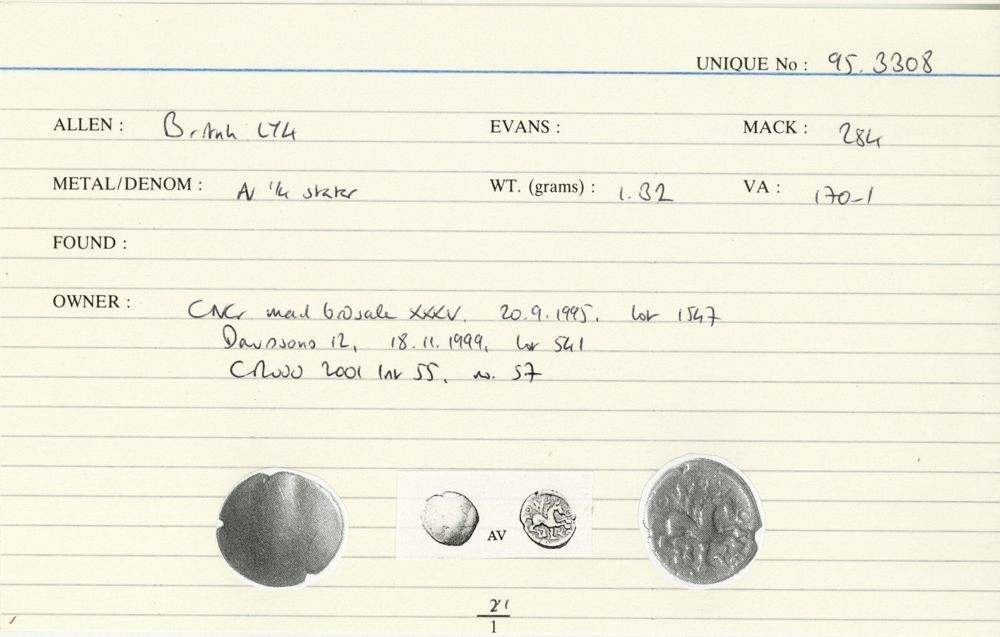 UNIQUE No : 95.3308
ALLEN : British LY4 EVANS : MACK : 284
METAL/DENOM : AV 1/4 stater WT. (grams) : 1.32 VA : 170-1
FOUND :
OWNER : CNG mail bid sale XXXV. 20.9.1995. lot 1547
Davissons 12, 18.11.1999, lot 541
2001 55, no. 57
AV
21
1